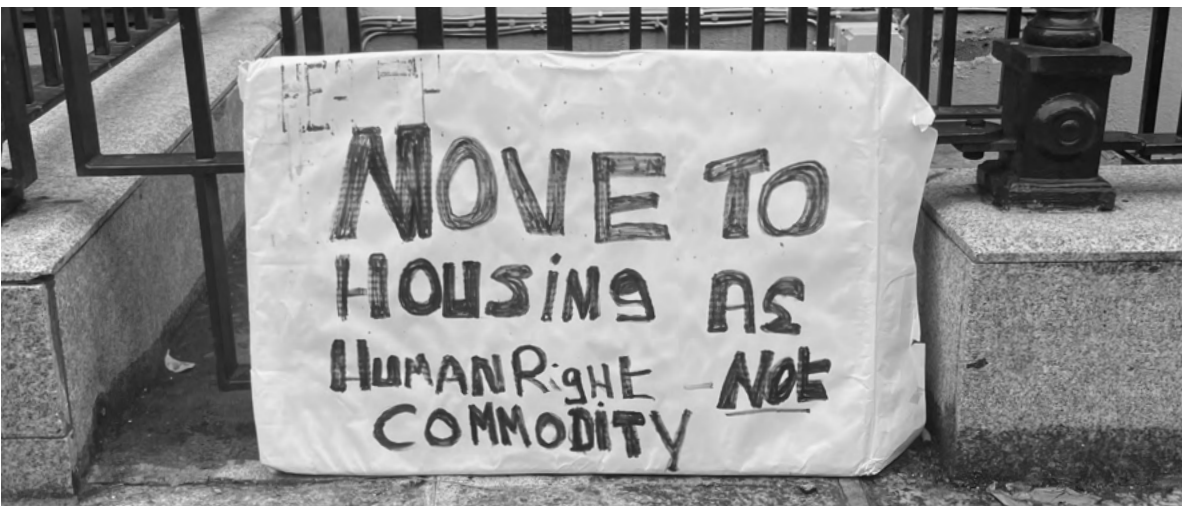 MOVE TO
HOUSING AS
HUMAN RigHt - NOt
COMMODiTY